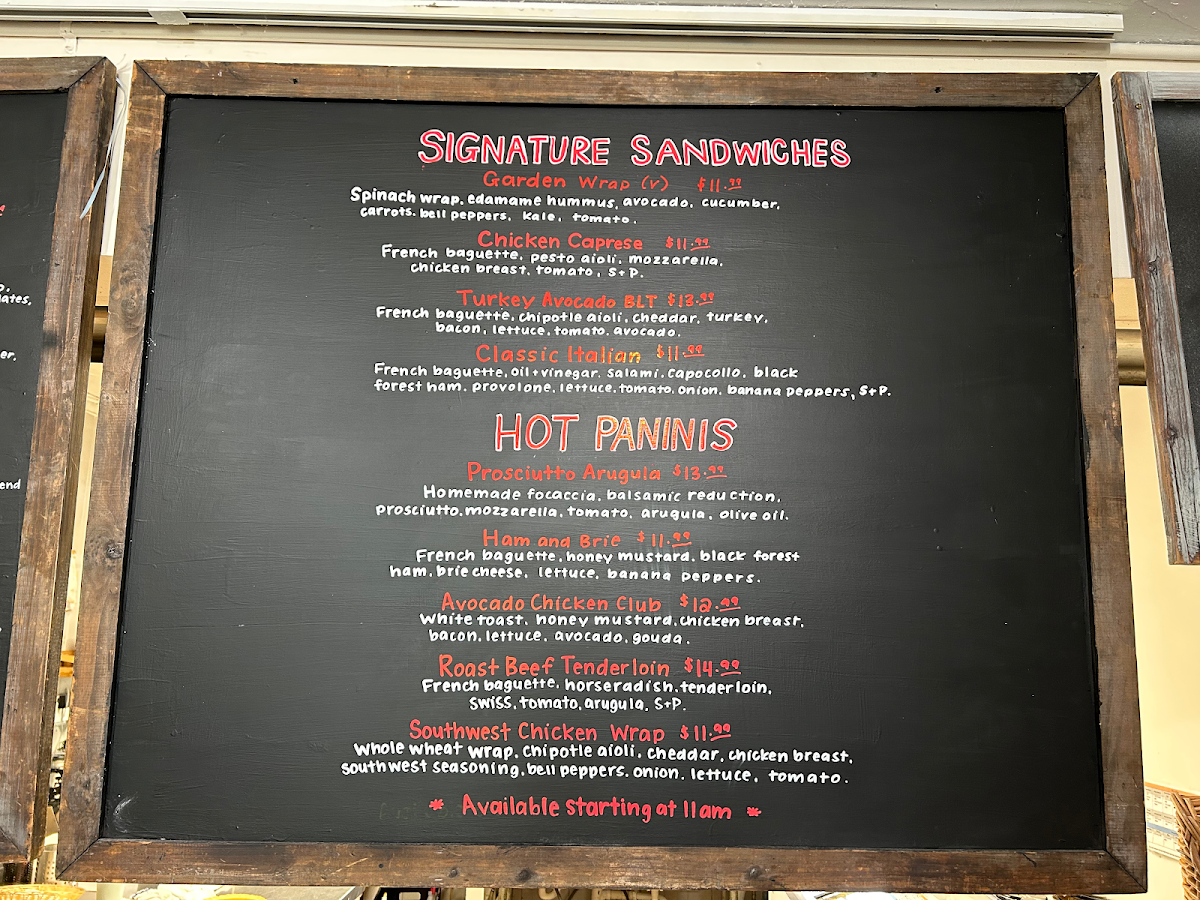 SIGNATURE SANDWICHES
Garden Wrap (v) $11.99
Spinach wrap, edamame hummus, avocado, cucumber,
carrots, bell peppers, kale, tomato.
Chicken Caprese $11.99
French baguette, pesto aioli, mozzarella,
chicken breast, tomato, S+P.
Turkey Avocado BLT $13.99
French baguette, chipotle aioli, cheddar, turkey,
bacon, lettuce, tomato, avocado.
Classic Italian $11.99
French baguette, oil+vinegar, salami, capocollo, black
forest ham, provolone, lettuce, tomato, onion, banana peppers, S+P.
HOT PANINIS
Prosciutto Arugula $13.99
Homemade focaccia, balsamic reduction,
prosciutto, mozzarella, tomato, arugula, olive oil.
Ham and Brie $11.99
French baguette, honey mustard, black forest
ham, brie cheese, lettuce, banana peppers.
Avocado Chicken Club $12.99
White toast, honey mustard, chicken breast,
bacon, lettuce, avocado, gouda.
Roast Beef Tenderloin $14.99
French baguette, horseradish, tenderloin,
swiss, tomato, arugula, S+P.
Southwest Chicken Wrap $11.99
Whole wheat wrap, chipotle aioli, cheddar, chicken breast,
southwest seasoning, bell peppers, onion, lettuce, tomato.
* Available starting at 11am *